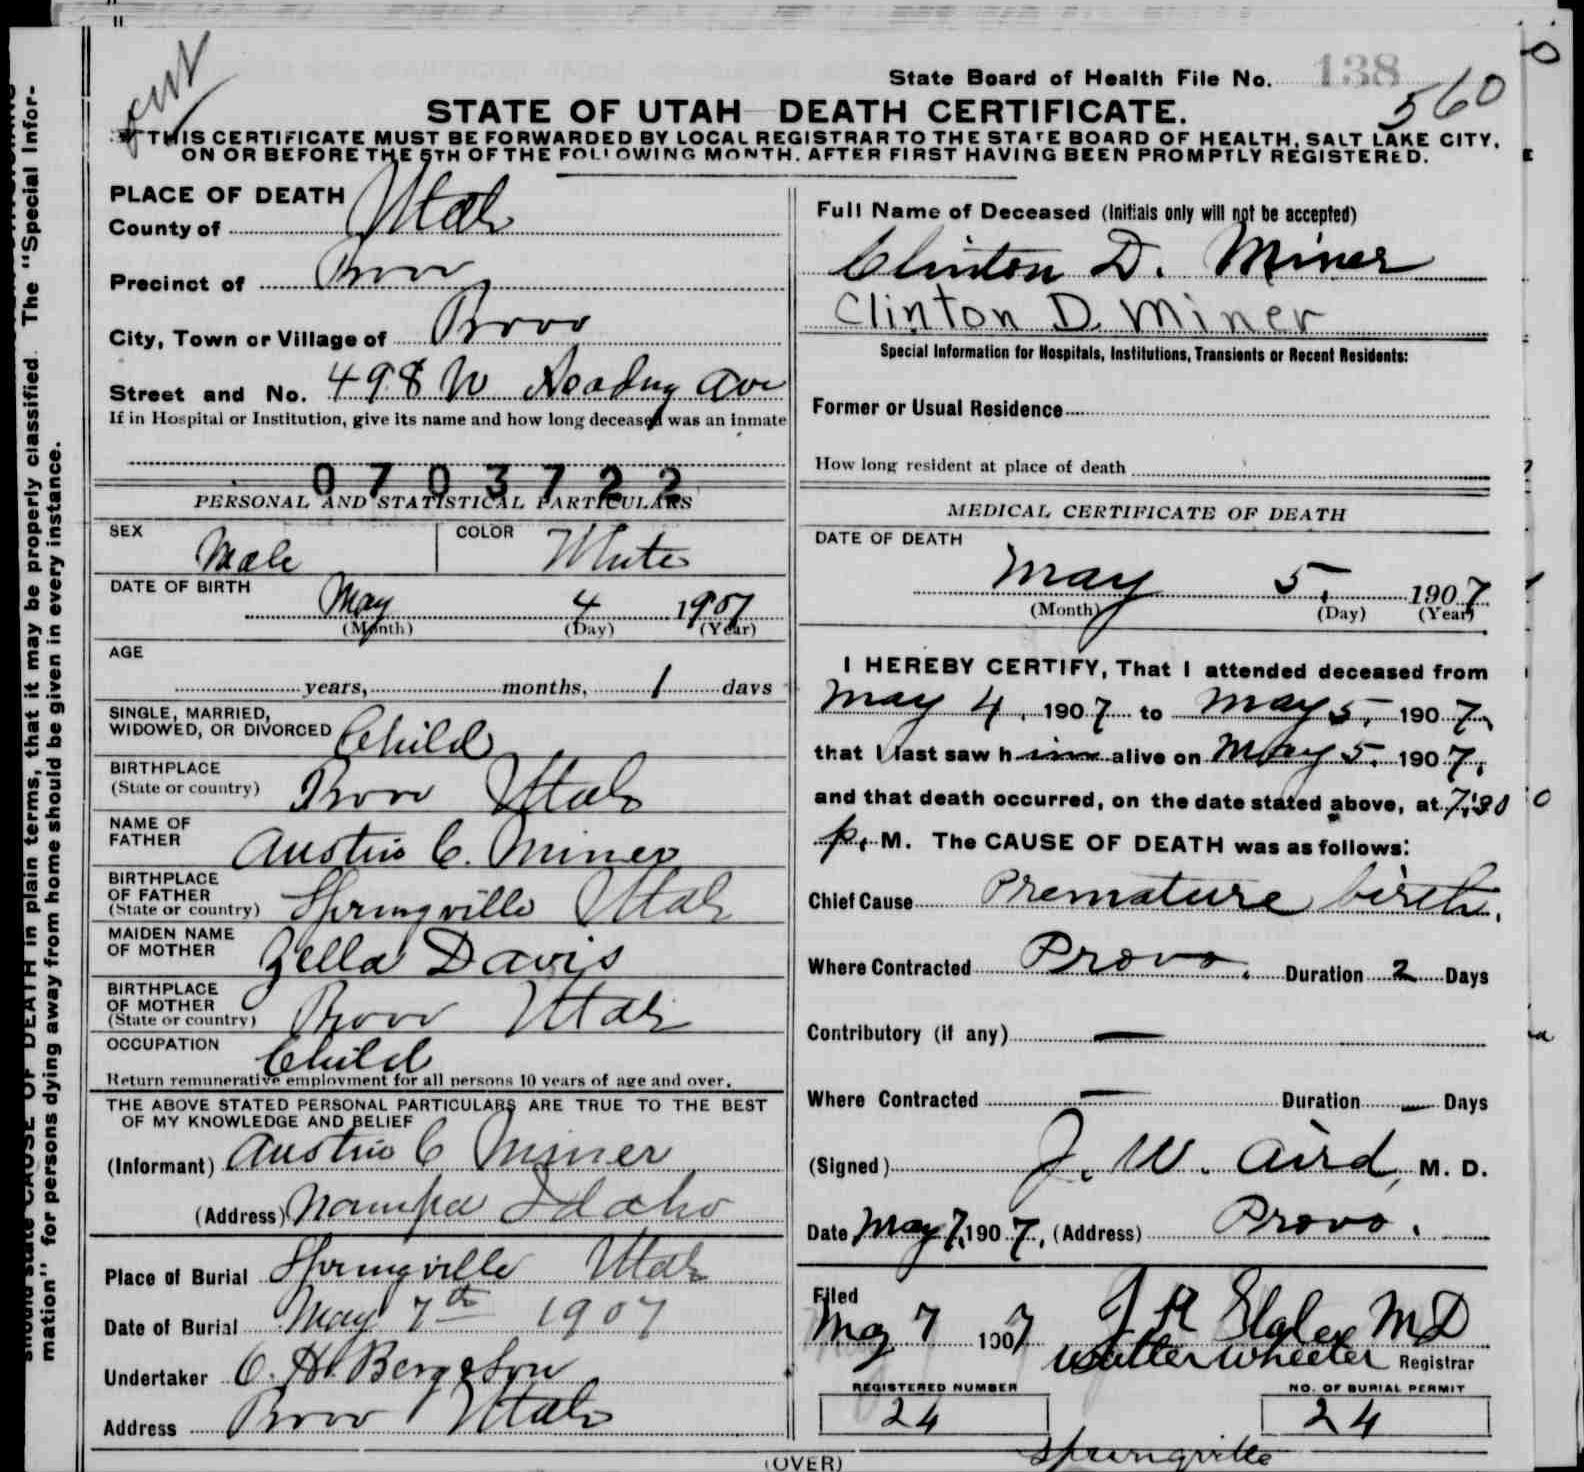 State Board of Health File No. 138
560
STATE OF UTAH DEATH CERTIFICATE.
THIS CERTIFICATE MUST BE FORWARDED BY LOCAL REGISTRAR TO THE STATE BOARD OF HEALTH, SALT LAKE CITY,
ON OR BEFORE THE 5TH OF THE FOLLOWING MONTH, AFTER FIRST HAVING BEEN PROMPTLY REGISTERED.
PLACE OF DEATH
County of Utah
Precinct of Provo
City, Town or Village of Provo
Street and No. 498 W Academy Ave
If in Hospital or Institution, give its name and how long deceased was an inmate
0703722
PERSONAL AND STATISTICAL PARTICULARS
SEX Male COLOR White
DATE OF BIRTH
May 4 1907
(Month) (Day) (Year)
AGE
years, months, 1 days
SINGLE, MARRIED,
WIDOWED, OR DIVORCED Child
BIRTHPLACE
(State or country) Provo Utah
NAME OF
FATHER Austin C. Miner
BIRTHPLACE
OF FATHER
(State or country) Springville Utah
MAIDEN NAME
OF MOTHER Zella Davis
BIRTHPLACE
OF MOTHER
(State or country) Provo Utah
OCCUPATION Child
Return remunerative employment for all persons 10 years of age and over.
THE ABOVE STATED PERSONAL PARTICULARS ARE TRUE TO THE BEST
OF MY KNOWLEDGE AND BELIEF
(Informant) Austin C Miner
(Address) Nampa Idaho
Place of Burial Springville Utah
Date of Burial May 7th 1907
Undertaker O. H. Bergeson
Address Provo Utah
Full Name of Deceased (Initials only will not be accepted)
Clinton D. Miner
Clinton D. Miner
Special Information for Hospitals, Institutions, Transients or Recent Residents:
Former or Usual Residence
How long resident at place of death
MEDICAL CERTIFICATE OF DEATH
DATE OF DEATH
May 5, 1907
(Month) (Day) (Year)
I HEREBY CERTIFY, That I attended deceased from
May 4, 1907 to May 5, 1907,
that I last saw him alive on May 5, 1907,
and that death occurred, on the date stated above, at 7:30
p. M. The CAUSE OF DEATH was as follows:
Chief Cause Premature birth.
Where Contracted Provo. Duration 2 Days
Contributory (if any) —
Where Contracted — Duration — Days
(Signed) J. W. Aird, M. D.
Date May 7, 1907, (Address) Provo.
Filed
May 7 1907 MD
Walter Wheeler Registrar
REGISTERED NUMBER
24
NO. OF BURIAL PERMIT
24
Springville
(OVER)
should state CAUSE OF DEATH in plain terms, that it may be properly classified. The "Special Infor-
mation" for persons dying away from home should be given in every instance.